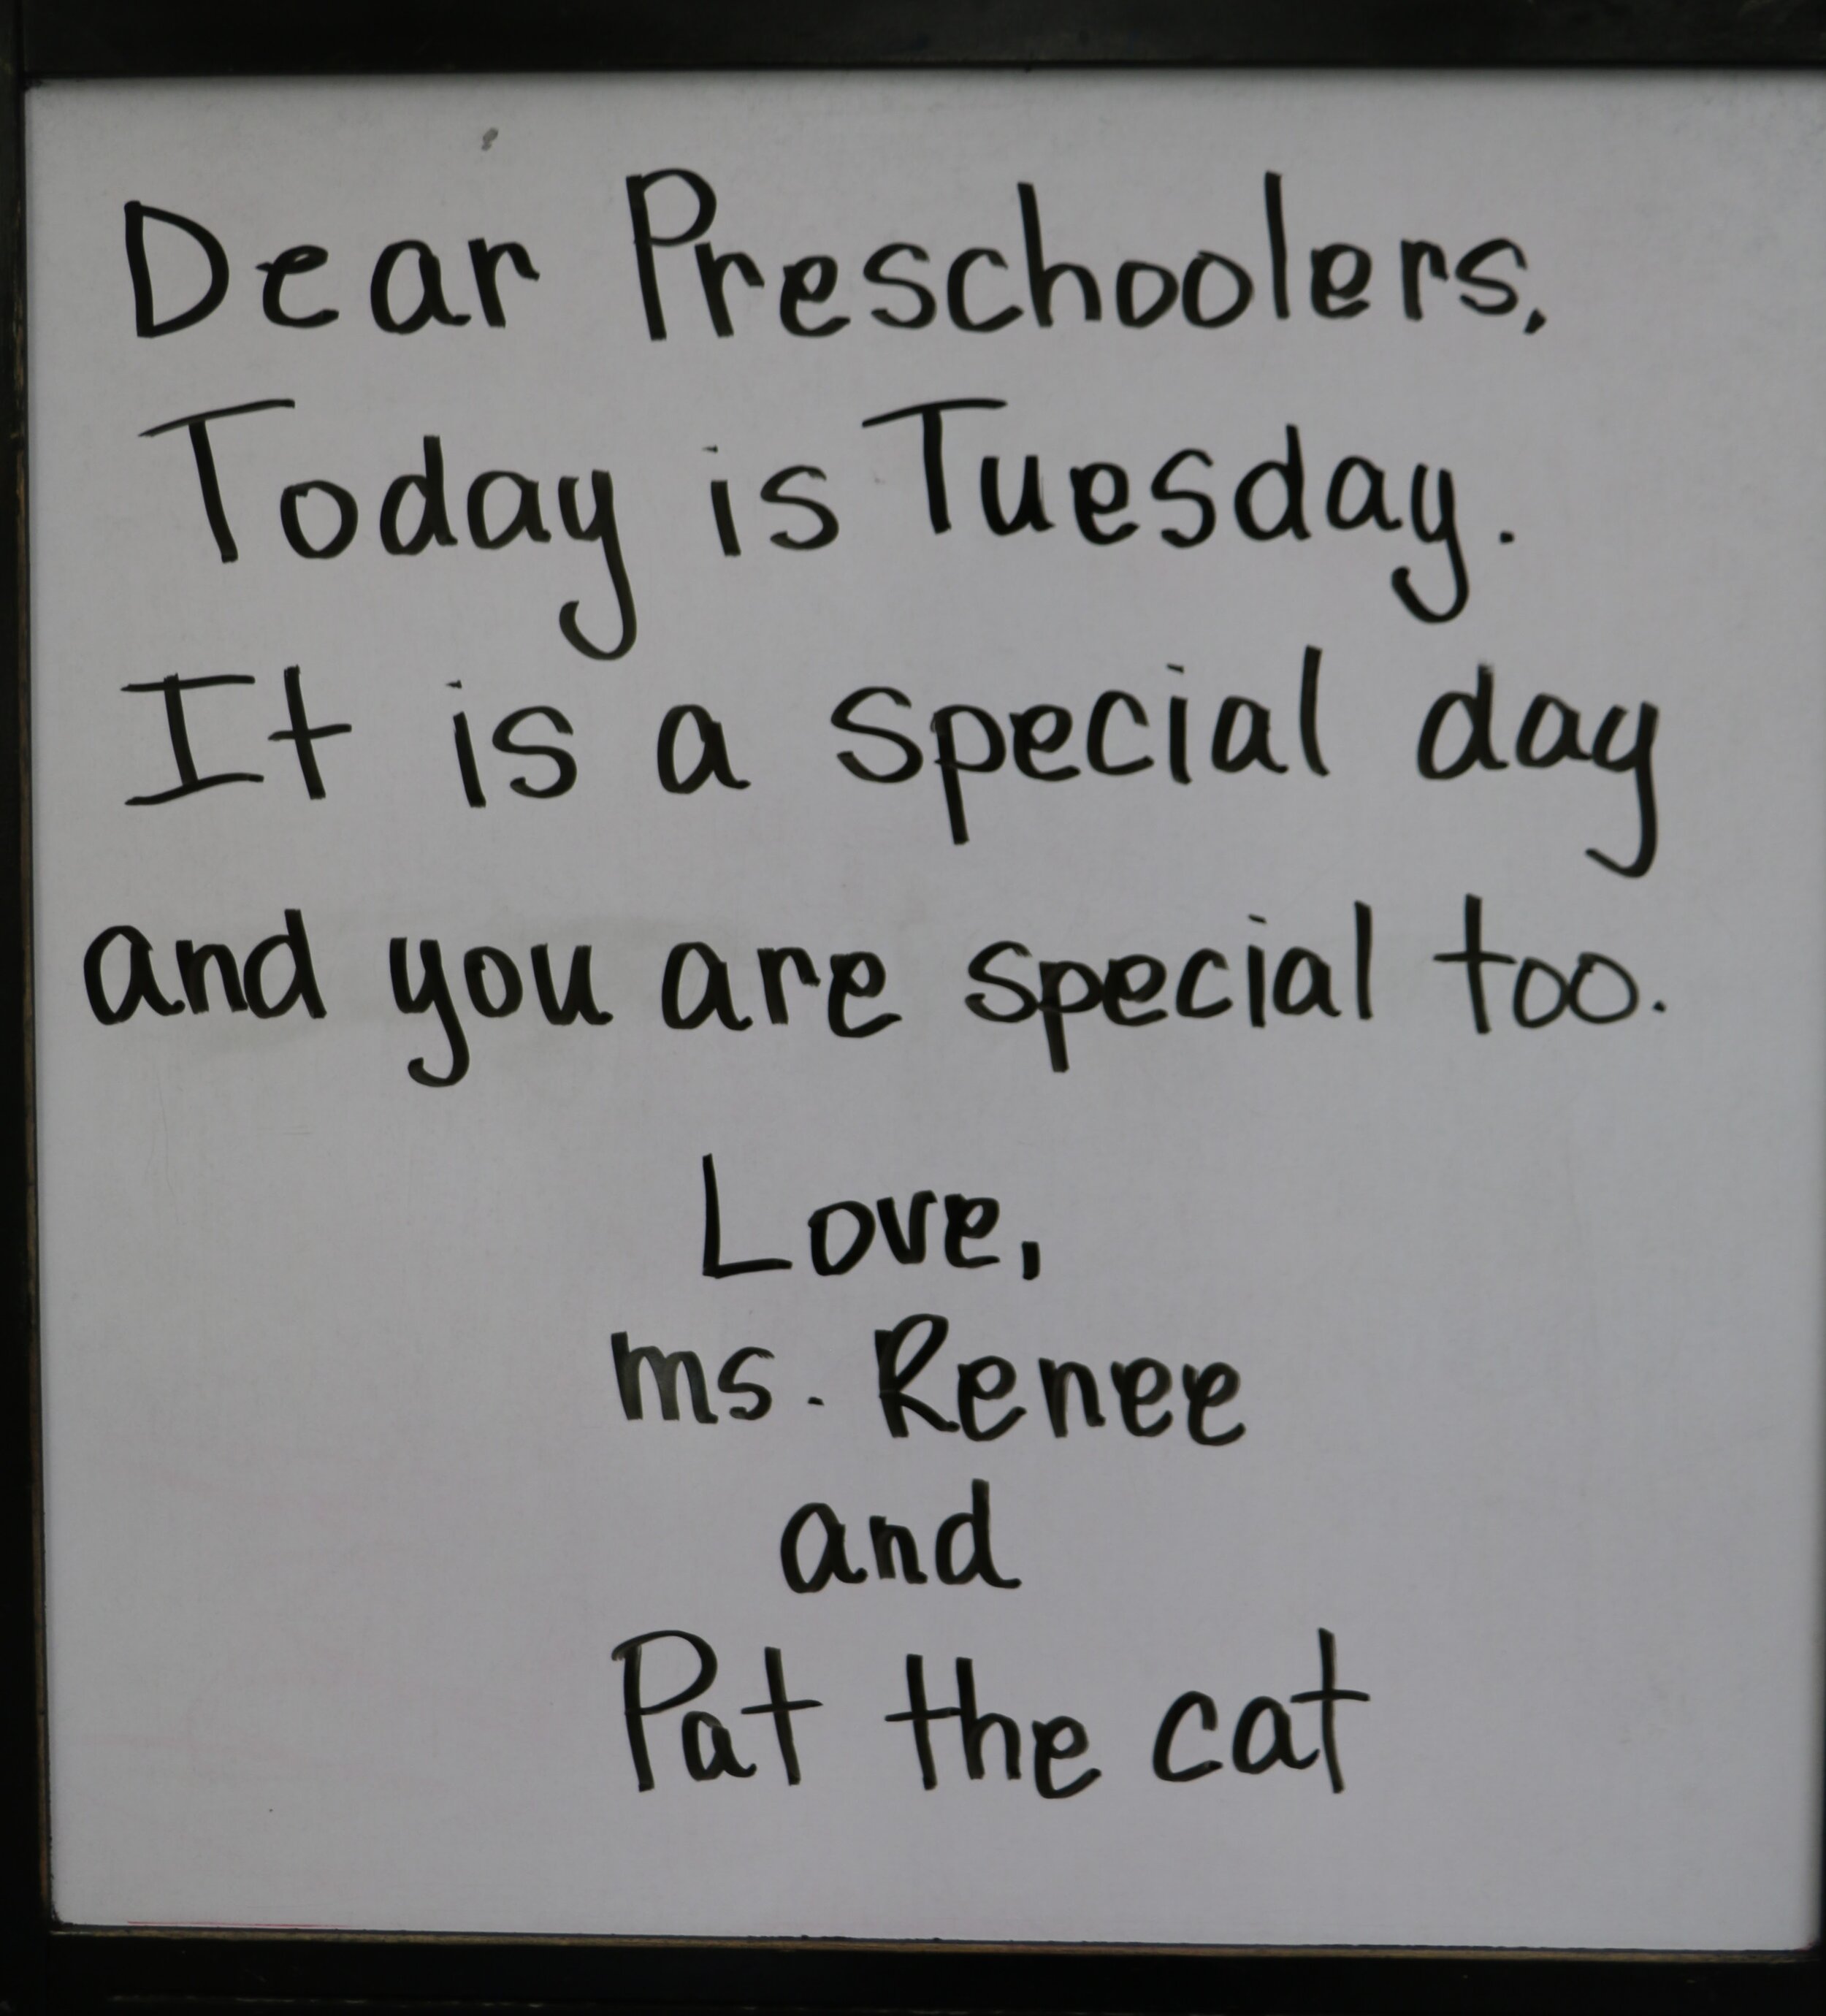 Dear Preschoolers,
Today is Tuesday.
It is a special day
and you are special too.
Love,
ms. Renee
and
Pat the cat